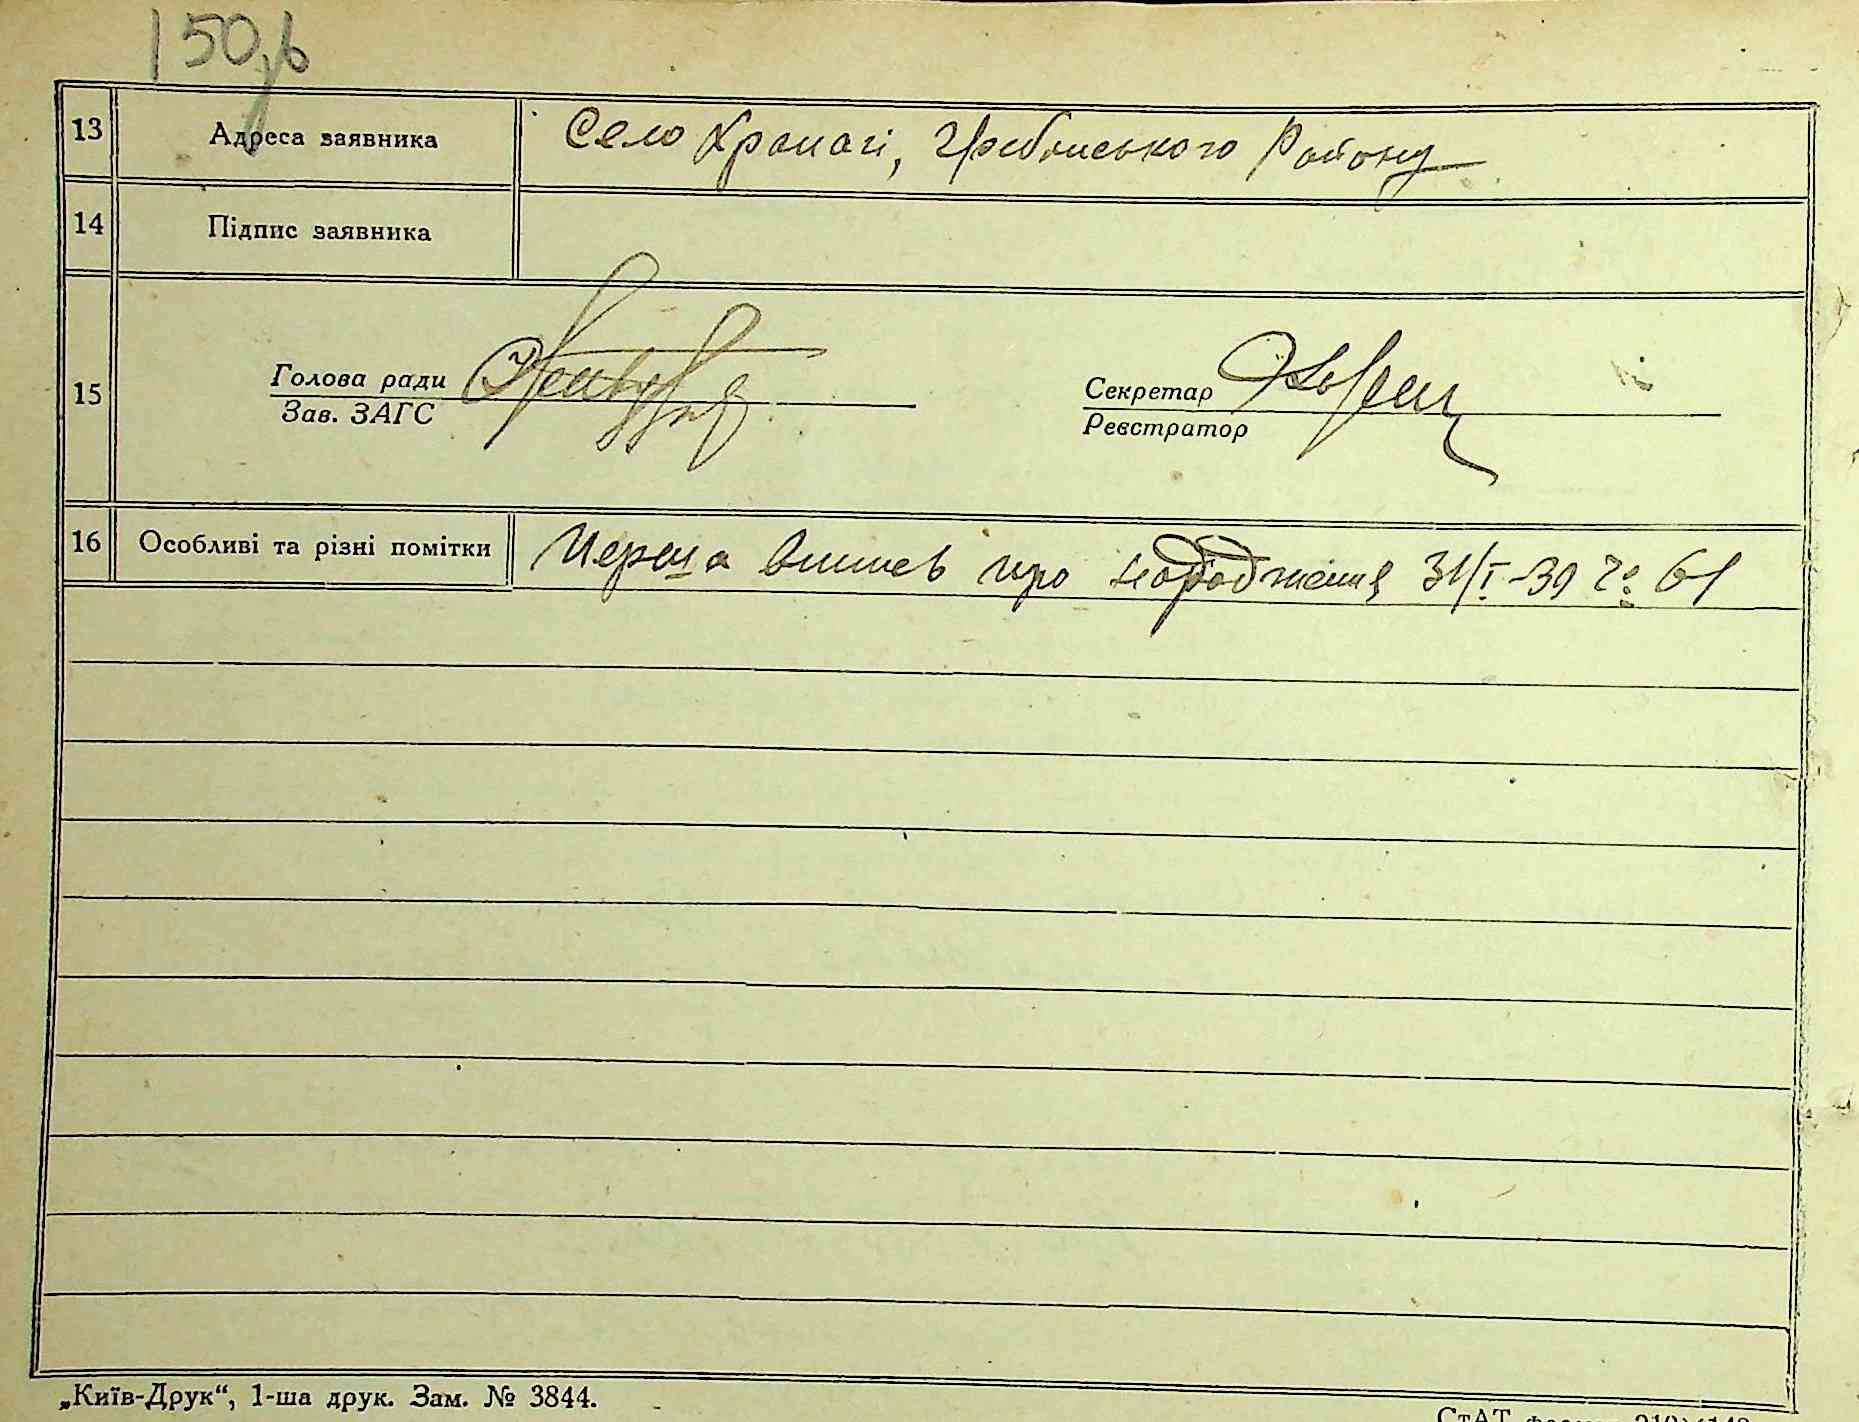 150
13 Адреса заявника Село Храпачі, Гребінського Району
14 Підпис заявника
15 Голова ради Секретар
Зав. ЗАГС Реєстратор
16 Особливі та різні помітки Перша про народження 31/I-39 61
„Київ-Друк“, 1-ша друк. Зам. № 3844.